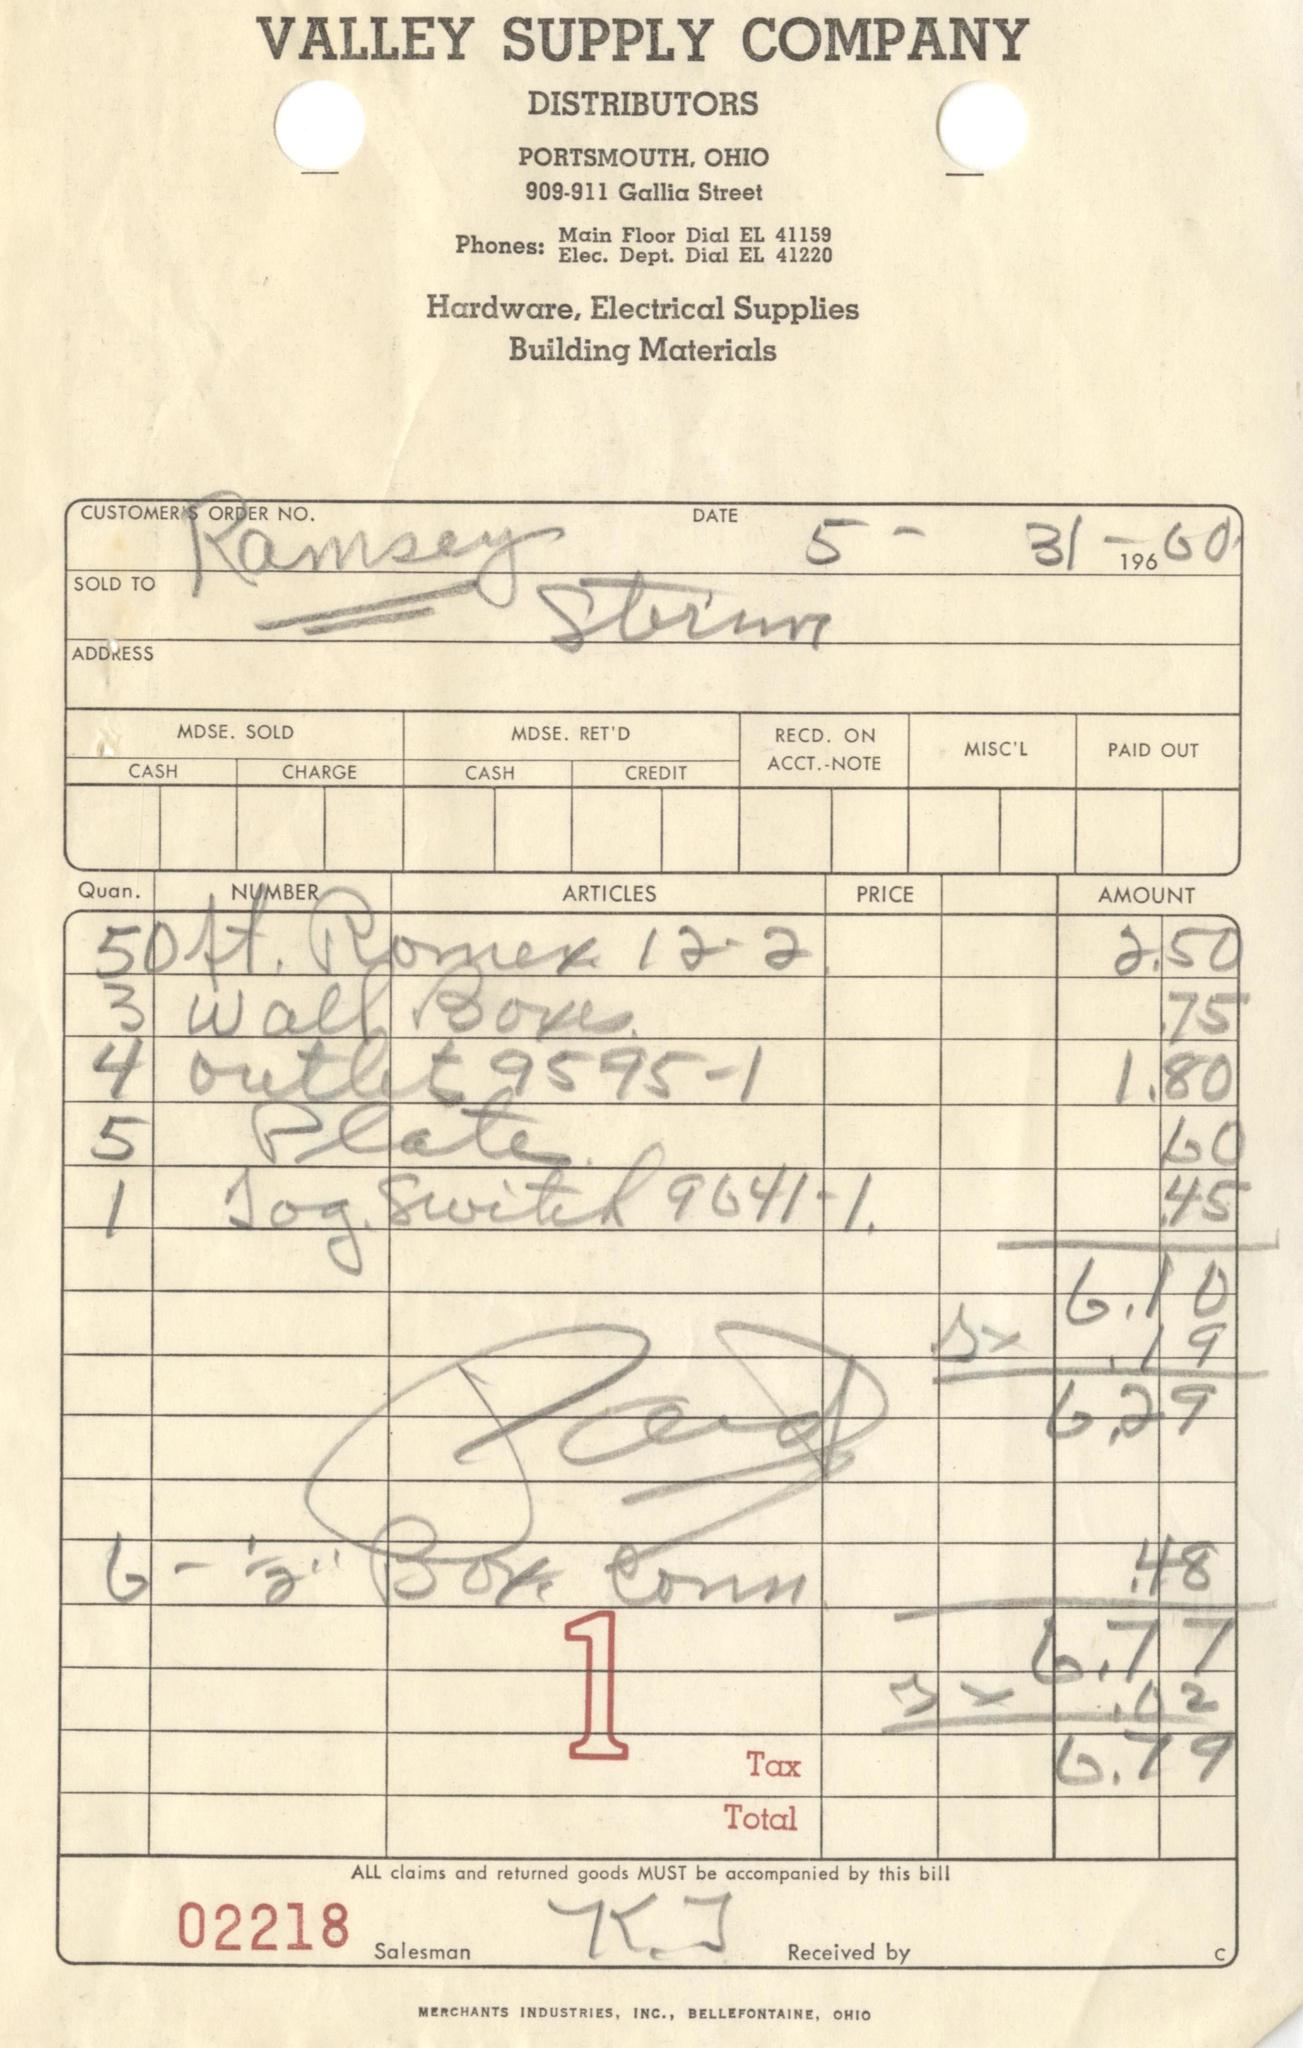 VALLEY SUPPLY COMPANY
DISTRIBUTORS
PORTSMOUTH, OHIO
909-911 Gallia Street
Phones: Main Floor Dial EL 41159
Elec. Dept. Dial EL 41220
Hardware, Electrical Supplies
Building Materials
CUSTOMER'S ORDER NO. Ramsey DATE 5 - 31 - 196 60
SOLD TO
ADDRESS
MDSE. SOLD MDSE. RET'D RECD. ON ACCT.-NOTE MISC'L PAID OUT
CASH CHARGE CASH CREDIT
Quan. NUMBER ARTICLES PRICE AMOUNT
50 ft. Romex 12-2 2.50
3 Wall Boxes .75
4 outlets 9595-1 1.80
5 Plates 60
1 Tog. Switch 9641-1. .45
6.10
Tx .19
6.29
Paid
6 - 1/2" Box Conn. .48
6.77
Tx .02
6.79
1
Tax
Total
ALL claims and returned goods MUST be accompanied by this bill
02218 Salesman K.J Received by C
MERCHANTS INDUSTRIES, INC., BELLEFONTAINE, OHIO